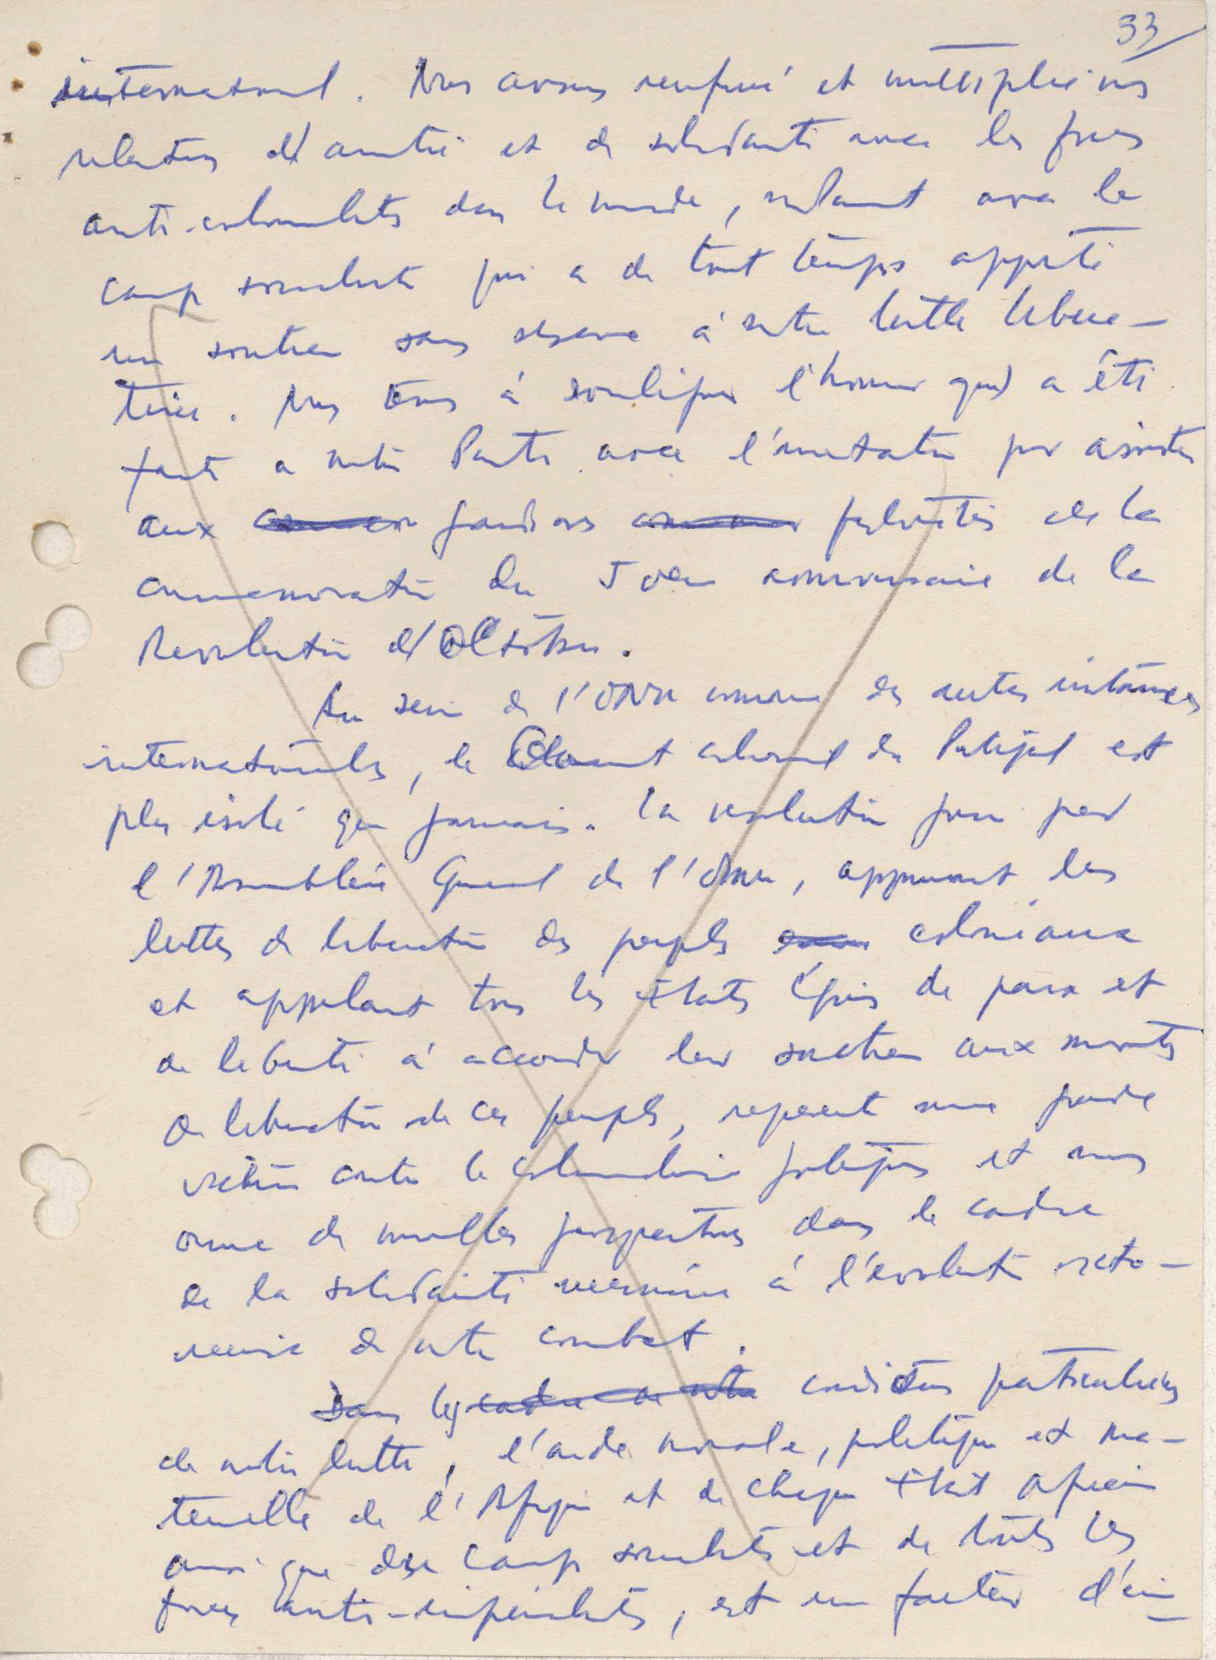 33
international. Nous avons renforcé et multiplié nos
relations d'amitié et de solidarité avec les forces
anti-colonialistes dans le monde, notamment avec le
camp socialiste qui a de tout temps apporté
un soutien sans réserve à notre lutte libéra-
trice. Nous tenons à souligner l'honneur qui a été
fait à notre Parti avec l'invitation pour assister
aux grandioses festivités de la
commémoration du 50em anniversaire de la
Révolution d'Octobre.
Au sein de l'ONU comme des autres instances
internationales, le colonial du Portugal est
plus isolé que jamais. La résolution prise par
l'Assemblée Général de l'ONU, appuyant les
luttes de libération des peuples coloniaux
et appelant tous les États épris de paix et
de liberté à accorder leur soutien aux mouvts
de libération de ces peuples, représente une grande
victoire contre le colonialisme portugais et nous
ouvre de nouvelles perspectives dans le cadre
de la solidarité nécessaire à l'évolution victo-
rieuse de notre combat.
Dans les conditions particulières
de notre lutte, l'aide morale, politique et ma-
térielle de l'Afrique et de chaque État africain
ainsi que du camp socialiste et de toutes les
forces anti-impérialistes, est un facteur d'im-